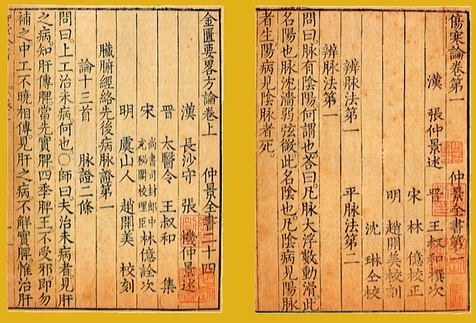 傷寒論卷第一 仲景全書第一
漢 張仲景述 晉 王叔和撰次
宋 林億校正
明 趙開美校刻
沈琳仝校
辨脉法第一 平脉法第二
辨脉法第一
問曰脉有陰陽何謂也荅曰凡脉大浮數動滑此
名陽也脉沈濇弱弦微此名陰也凡陰病見陽脉
者生陽病見陰脉者死
金匱要畧方論卷上 仲景全書二十四
漢 長沙守 張機仲景述
晉 太醫令 王叔和 集
宋 尚書司封郎中充秘閣校理臣 林億詮次
明 虞山人 趙開美 校刻
臟腑經絡先後病脉證第一
論十三首 脉證二條
問曰上工治未病何也〇師曰夫治未病者見肝
之病知肝傳脾當先實脾四季脾王不受邪即勿
補之中工不曉相傳見肝之病不解實脾惟治肝